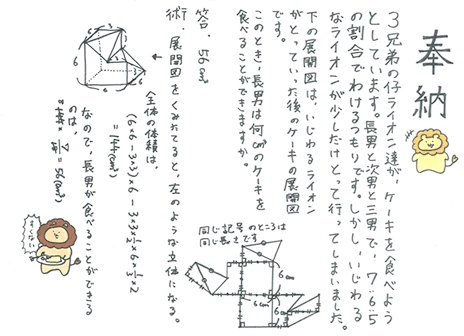 奉納
3兄弟の仔ライオン達が、ケーキを食べよう
としています。長男と次男と三男で、7:6:5
の割合でわけるつもりです。しかし、いじわる
なライオンが少しだけとって行ってしまいました。
下の展開図は、いじわるライオン
がとっていった後のケーキの展開図
このとき、長男は何cm³のケーキを
食べることができますか。
同じ記号のところは
同じ長さです
6cm
6cm
6cm
答. 56cm³
術. 展開図をくみたてると、左のような立体になる。
6
6
6
3
全体の体積は、
(6×6-3×3)×6-3×3×½×6×⅓×2
=144(cm³)
なので、長男が食べることができる
のは、
144×7/18=56(cm³)